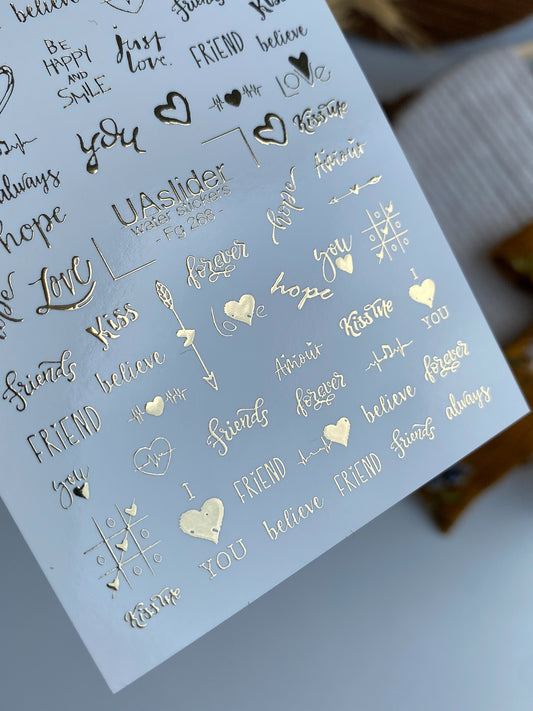 believe
friends
Kiss
BE
HAPPY
AND
SMILE
just
love.
FRIEND
believe
LOVE
always
you
Kiss Me
hope
UAslider
water stickers
- Fg 268 -
hope
Amour
Love
forever
you
Kiss
love
hope
Kiss Me
I
YOU
friends
believe
Amour
FRIEND
friends
forever
believe
forever
you
I
YOU
FRIEND
believe
FRIEND
friends
always
Kiss Me